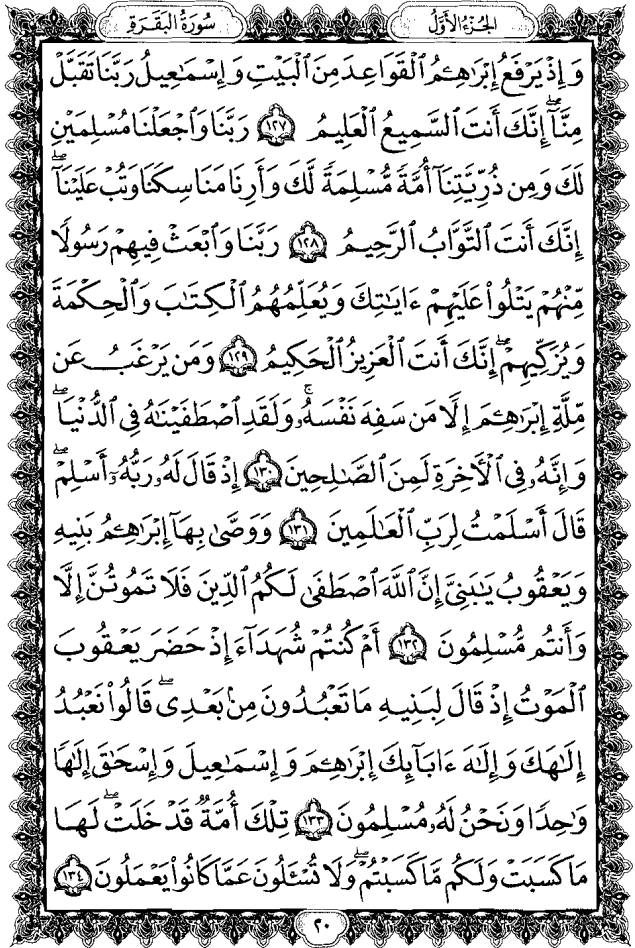 الجزء الأول
سورة البقرة
وَإِذْ يَرْفَعُ إِبْرَٰهِـۧمُ ٱلْقَوَاعِدَ مِنَ ٱلْبَيْتِ وَإِسْمَٰعِيلُ رَبَّنَا تَقَبَّلْ
مِنَّآ ۖ إِنَّكَ أَنتَ ٱلسَّمِيعُ ٱلْعَلِيمُ ١٢٧ رَبَّنَا وَٱجْعَلْنَا مُسْلِمَيْنِ
لَكَ وَمِن ذُرِّيَّتِنَآ أُمَّةً مُّسْلِمَةً لَّكَ وَأَرِنَا مَنَاسِكَنَا وَتُبْ عَلَيْنَآ ۖ
إِنَّكَ أَنتَ ٱلتَّوَّابُ ٱلرَّحِيمُ ١٢٨ رَبَّنَا وَٱبْعَثْ فِيهِمْ رَسُولًا
مِّنْهُمْ يَتْلُوا۟ عَلَيْهِمْ ءَايَٰتِكَ وَيُعَلِّمُهُمُ ٱلْكِتَٰبَ وَٱلْحِكْمَةَ
وَيُزَكِّيهِمْ ۖ إِنَّكَ أَنتَ ٱلْعَزِيزُ ٱلْحَكِيمُ ١٢٩ وَمَن يَرْغَبُ عَن
مِّلَّةِ إِبْرَٰهِـۧمَ إِلَّا مَن سَفِهَ نَفْسَهُۥ ۚ وَلَقَدِ ٱصْطَفَيْنَٰهُ فِى ٱلدُّنْيَا ۖ
وَإِنَّهُۥ فِى ٱلْءَاخِرَةِ لَمِنَ ٱلصَّٰلِحِينَ ١٣٠ إِذْ قَالَ لَهُۥ رَبُّهُۥٓ أَسْلِمْ ۖ
قَالَ أَسْلَمْتُ لِرَبِّ ٱلْعَٰلَمِينَ ١٣١ وَوَصَّىٰ بِهَآ إِبْرَٰهِـۧمُ بَنِيهِ
وَيَعْقُوبُ يَٰبَنِىَّ إِنَّ ٱللَّهَ ٱصْطَفَىٰ لَكُمُ ٱلدِّينَ فَلَا تَمُوتُنَّ إِلَّا
وَأَنتُم مُّسْلِمُونَ ١٣٢ أَمْ كُنتُمْ شُهَدَآءَ إِذْ حَضَرَ يَعْقُوبَ
ٱلْمَوْتُ إِذْ قَالَ لِبَنِيهِ مَا تَعْبُدُونَ مِنۢ بَعْدِى ۖ قَالُوا۟ نَعْبُدُ
إِلَٰهَكَ وَإِلَٰهَ ءَابَآئِكَ إِبْرَٰهِـۧمَ وَإِسْمَٰعِيلَ وَإِسْحَٰقَ إِلَٰهًا
وَٰحِدًا وَنَحْنُ لَهُۥ مُسْلِمُونَ ١٣٣ تِلْكَ أُمَّةٌ قَدْ خَلَتْ ۖ لَهَا
مَا كَسَبَتْ وَلَكُم مَّا كَسَبْتُمْ ۖ وَلَا تُسْـَٔلُونَ عَمَّا كَانُوا۟ يَعْمَلُونَ ١٣٤
٢٠